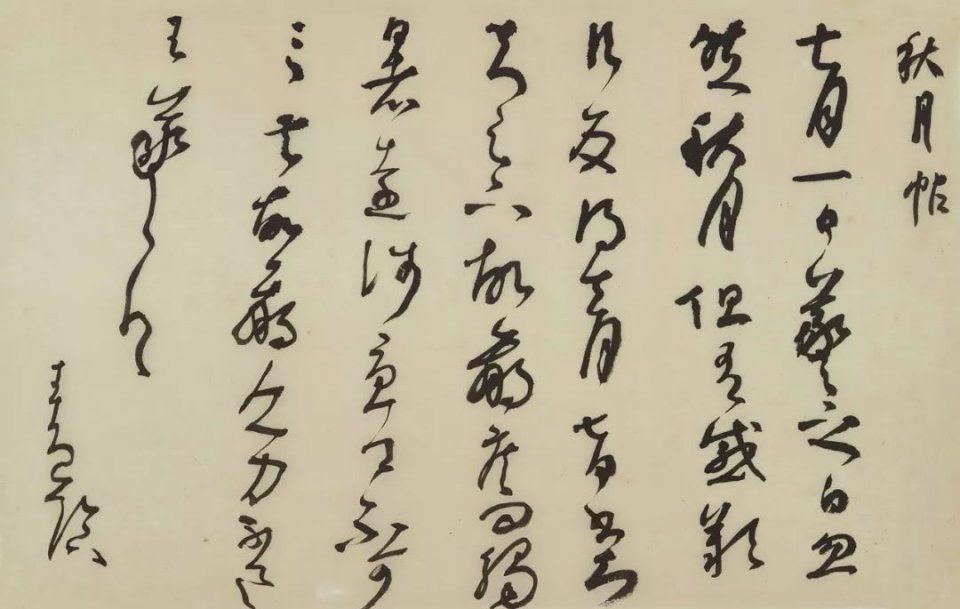 秋月帖
七月一日羲之白忽
然秋月但有感歎
信反得去月七日書
知足下故羸疾問觸
暑遠涉憂卿不可
言吾故羸乏力不具
王羲之白